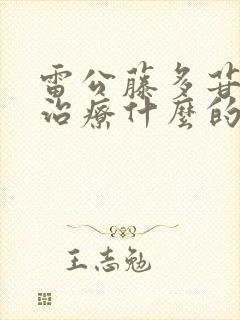 雷公藤多苷
治療什麼的
王志勉